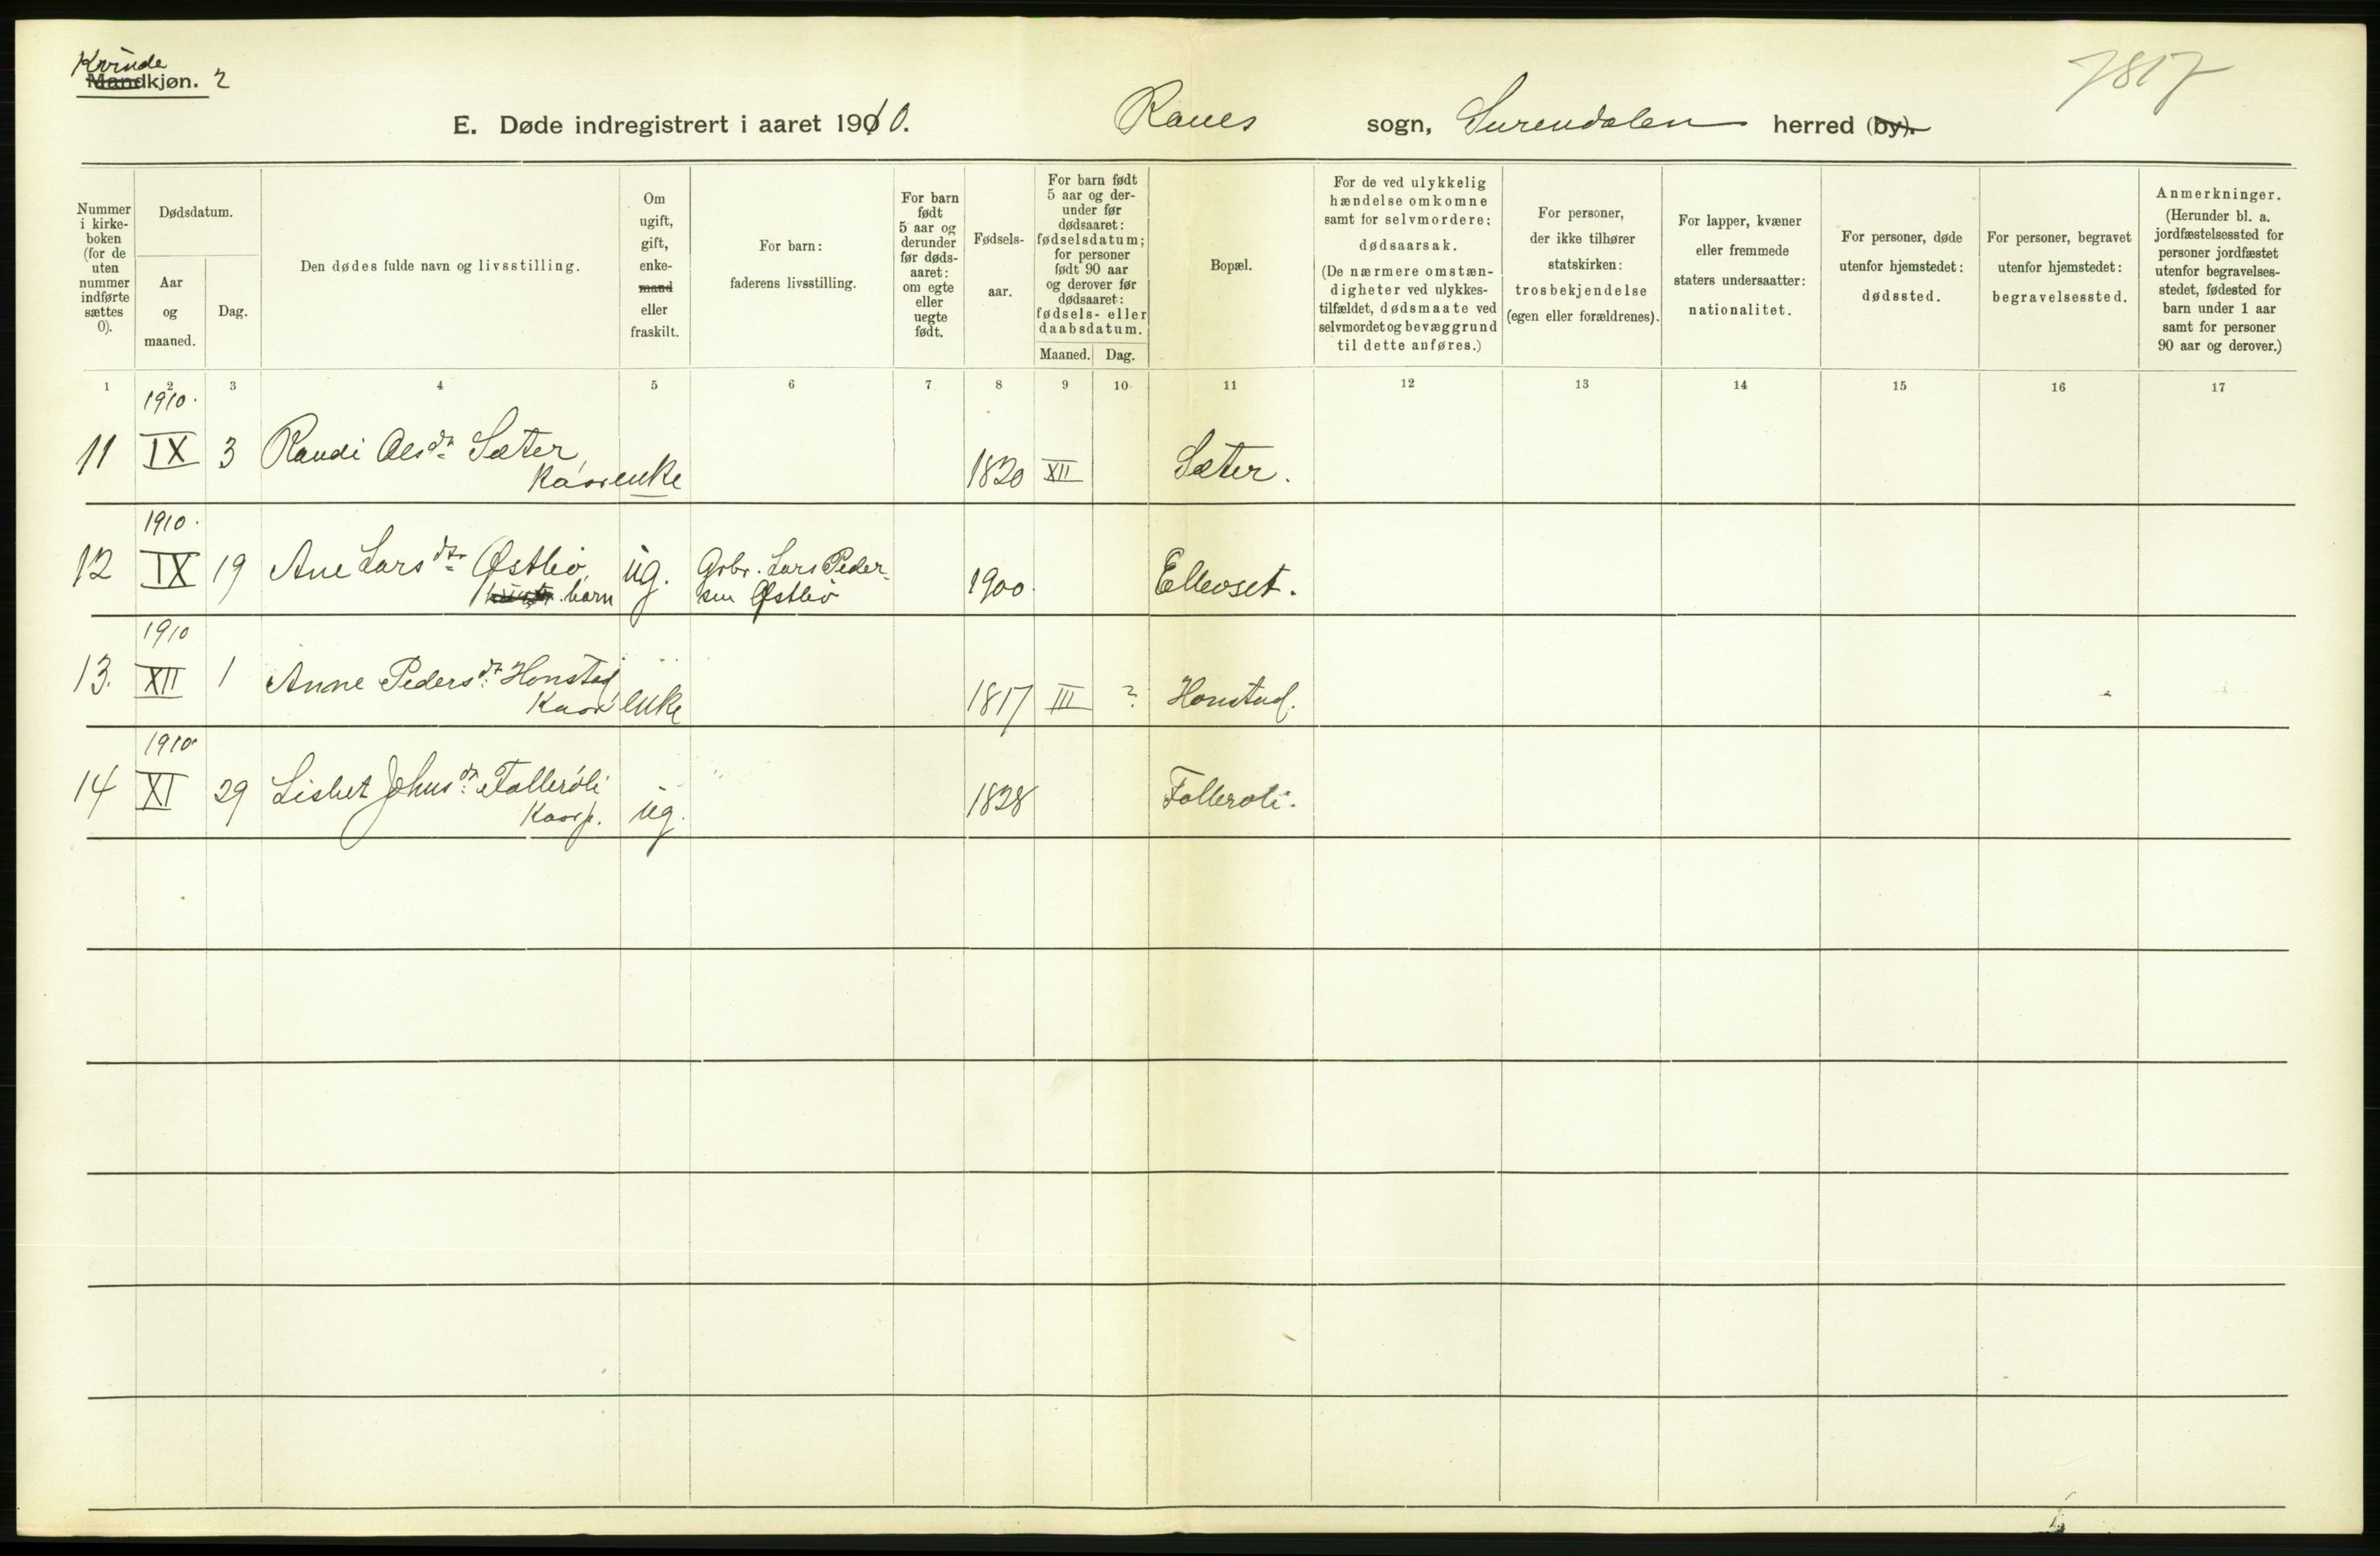 Kvinde
Mandkjøn. 2
7817
E. Døde indregistrert i aaret 1910. Ranes sogn, Surendalen herred (by).
Nummer i kirke-boken (for de uten nummer indførte sættes 0).
Dødsdatum.
Aar og maaned.
Dag.
Den dødes fulde navn og livsstilling.
Om ugift, gift, enke-mand eller fraskilt.
For barn: faderens livsstilling.
For barn født 5 aar og derunder før døds-aaret: om egte eller uegte født.
Fødsels-aar.
For barn født 5 aar og der-under før dødsaaret: fødselsdatum; for personer født 90 aar og derover før dødsaaret: fødsels- eller daabsdatum.
Maaned. Dag.
Bopæl.
For de ved ulykkelig hændelse omkomne samt for selvmordere: dødsaarsak. (De nærmere omstæn-digheter ved ulykkes-tilfældet, dødsmaate ved selvmordet og bevæggrund til dette anføres.)
For personer, der ikke tilhører statskirken: trosbekjendelse (egen eller forældrenes).
For lapper, kvæner eller fremmede staters undersaatter: nationalitet.
For personer, døde utenfor hjemstedet: dødssted.
For personer, begravet utenfor hjemstedet: begravelsessted.
Anmerkninger. (Herunder bl. a. jordfæstelsessted for personer jordfæstet utenfor begravelses-stedet, fødested for barn under 1 aar samt for personer 90 aar og derover.)
1 2 3 4 5 6 7 8 9 10 11 12 13 14 15 16 17
1910.
11 IX 3 Randi Olsdr Sæter 1820 XII Sæter.
Kaarenke
1910.
12 IX 19 Ane Larsdr Østbø ug. Grbr. Lars Peder- 1900. Ellevset.
barn sen Østbø
1910
13. XII 1 Anne Pedersdr. Honstad 1817 III ? Honstad.
Kaar enke
1910
14 XI 29 Lisbet Johnsdr. Follerøli 1828 Follerøli.
Kaarp. ug.